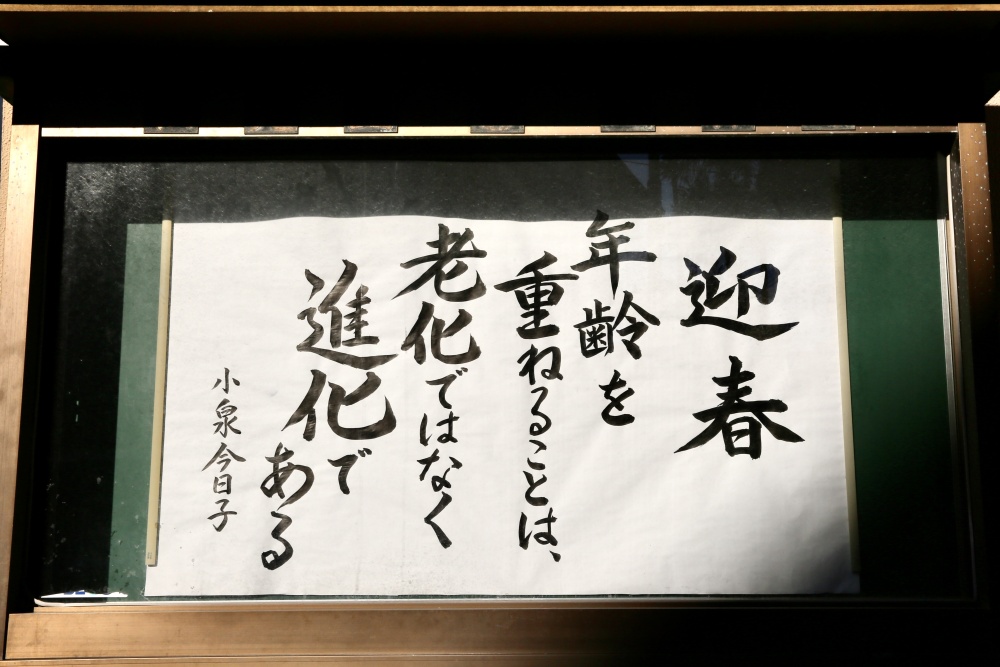 迎春
年齢を
重ねることは、
老化ではなく
進化で
ある
小泉今日子